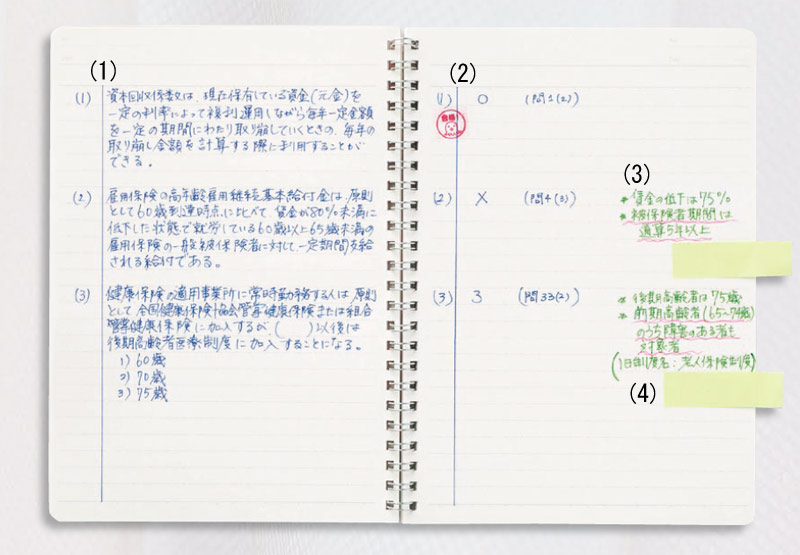 (1)
(1) 資本回収係数は、現在保有している資金(元金)を
一定の利率によって複利運用しながら毎年一定金額
を一定の期間にわたり取り崩していくときの、毎年の
取り崩し金額を計算する際に利用することが
できる。
(2) 雇用保険の高年齢雇用継続基本給付金は、原則
として60歳到達時点に比べて賃金が80%未満に
低下した状態で就労している60歳以上65歳未満の
雇用保険の一般被保険者に対して一定期間支給
される給付である。
(3) 健康保険の適用事業所に常時勤務する人は、原則
として全国健康保険協会管掌健康保険または組合
管掌健康保険に加入するが( )以後は
後期高齢者医療制度に加入することになる。
1) 60歳
2) 70歳
3) 75歳
(2)
(1) ○ (問1(2))
(2) × (問4(3))
(3) 3 (問33(2))
(3)
* 賃金の低下は75%
* 被保険者期間は
通算5年以上
* 後期高齢者は75歳
* 前期高齢者(65~74歳)
のうち障害のある者も
対象者
(旧制度名:老人保険制度)
(4)